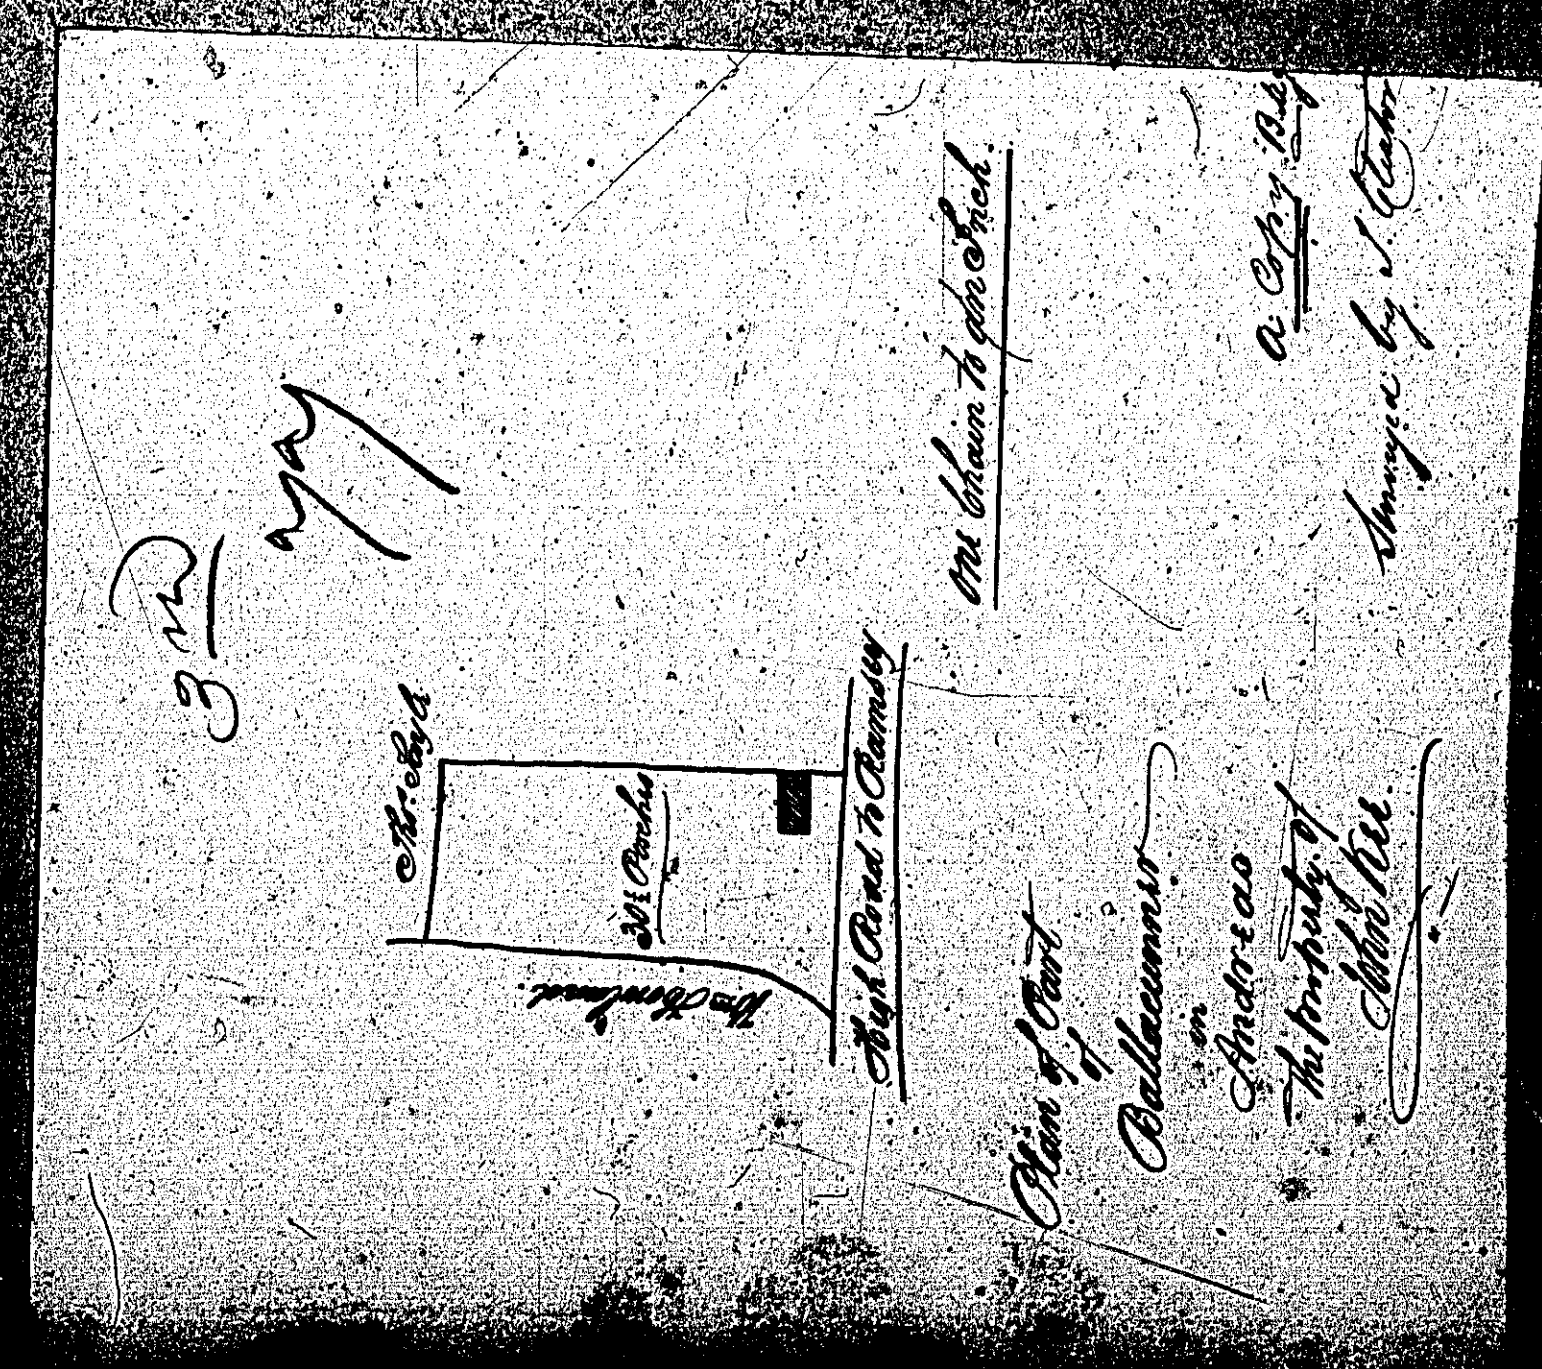 Thos. Kayle
30½ Perches
Wm. Rowland.
High Road to Ramsey
one Chain to an Inch.
Plan of Part
of
Ballacunner
in
Andreas
The Property of
John Kee.
a Copy
Surveyed by